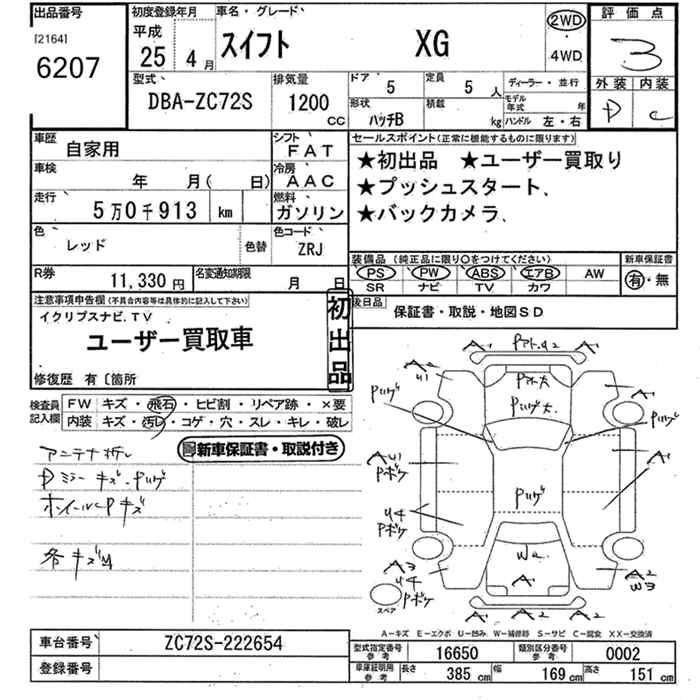 出品番号
[2164]
6207
初度登録年月
平成
25年 4月
車名・グレード
スイフト XG
2WD
・
4WD
評価点
3
外装 内装
D C
型式
DBA-ZC72S
排気量
1200
CC
ドア 5
定員 5 人
ディーラー・並行
形状 ハッチB
積載 kg
モデル年式 年
ハンドル 左・右
車歴 自家用
シフト FAT
車検 年 月( 日)
冷房 AAC
走行 5万0千913 km
燃料 ガソリン
色 レッド
色替
色コード ZRJ
R券 11,330円
名変通知期限 月 日
セールスポイント(正常に機能するものに限ります)
★初出品 ★ユーザー買取り
★プッシュスタート、
★バックカメラ、
装備品 (純正品に限り○をつけてください)
PS PW ABS エアB AW
SR ナビ TV カワ
新車保証書
有・無
後日品
保証書・取説・地図SD
注意事項申告欄(不具合内容等は具体的に記入して下さい)
イクリプスナビ、TV
ユーザー買取車
初出品
修復歴 有〔箇所
検査員記入欄
FW キズ・飛石・ヒビ割・リペア跡・×要
内装 キズ・汚レ・コゲ・穴・スレ・キレ・破レ
新車保証書・取説付き
アンテナ折レ
Dミラーキズ、Pリゲ
ホイールCPキズ
各キズM
Pアト、U2
A1 A1
A2
U1
Pリゲ
Pアト大
Pリゲ大
A1
Pリゲ
AU1
Pボケ
A1
Pリゲ
U4
Pボケ
W2
A1
A3
U4
Pボケ
A2
W3
A1 A2 A1
スペア
A-キズ E-エクボ U-凹み W-補修跡 S-サビ C-腐食 XX-交換済
車台番号 ZC72S-222654
登録番号
型式指定番号 参考 16650
類別区分番号 参考 0002
車庫証明用 参考 長さ 385 cm 幅 169 cm 高さ 151 cm